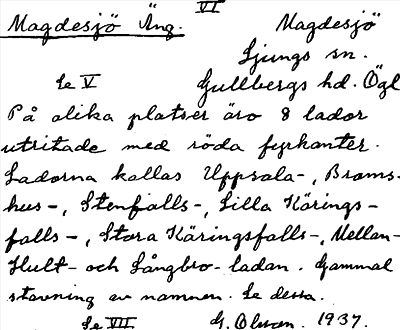 VI
Magdesjö Äng. Magdesjö
Ljungs sn.
Se V Gullbergs hd. Ögl
På olika platser äro 8 lador
utritade med röda fyrkanter.
Ladorna kallas Uppsala-, Broms-
hus-, Stenfalls-, Lilla Kärings-
falls-, Stora Käringsfalls-, Mellan-
Hult- och Långbro-ladan. Gammal
stavning av namnen. Se dessa.
Se VII G. Olsson. 1937.